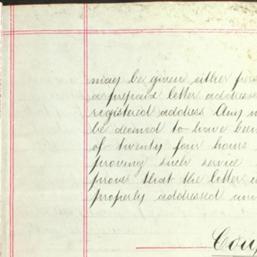 may be given either
a prepaid letter
registered address Any
be deemed to have been
of twenty four hours
proving such service
prove that the letter
properly addressed